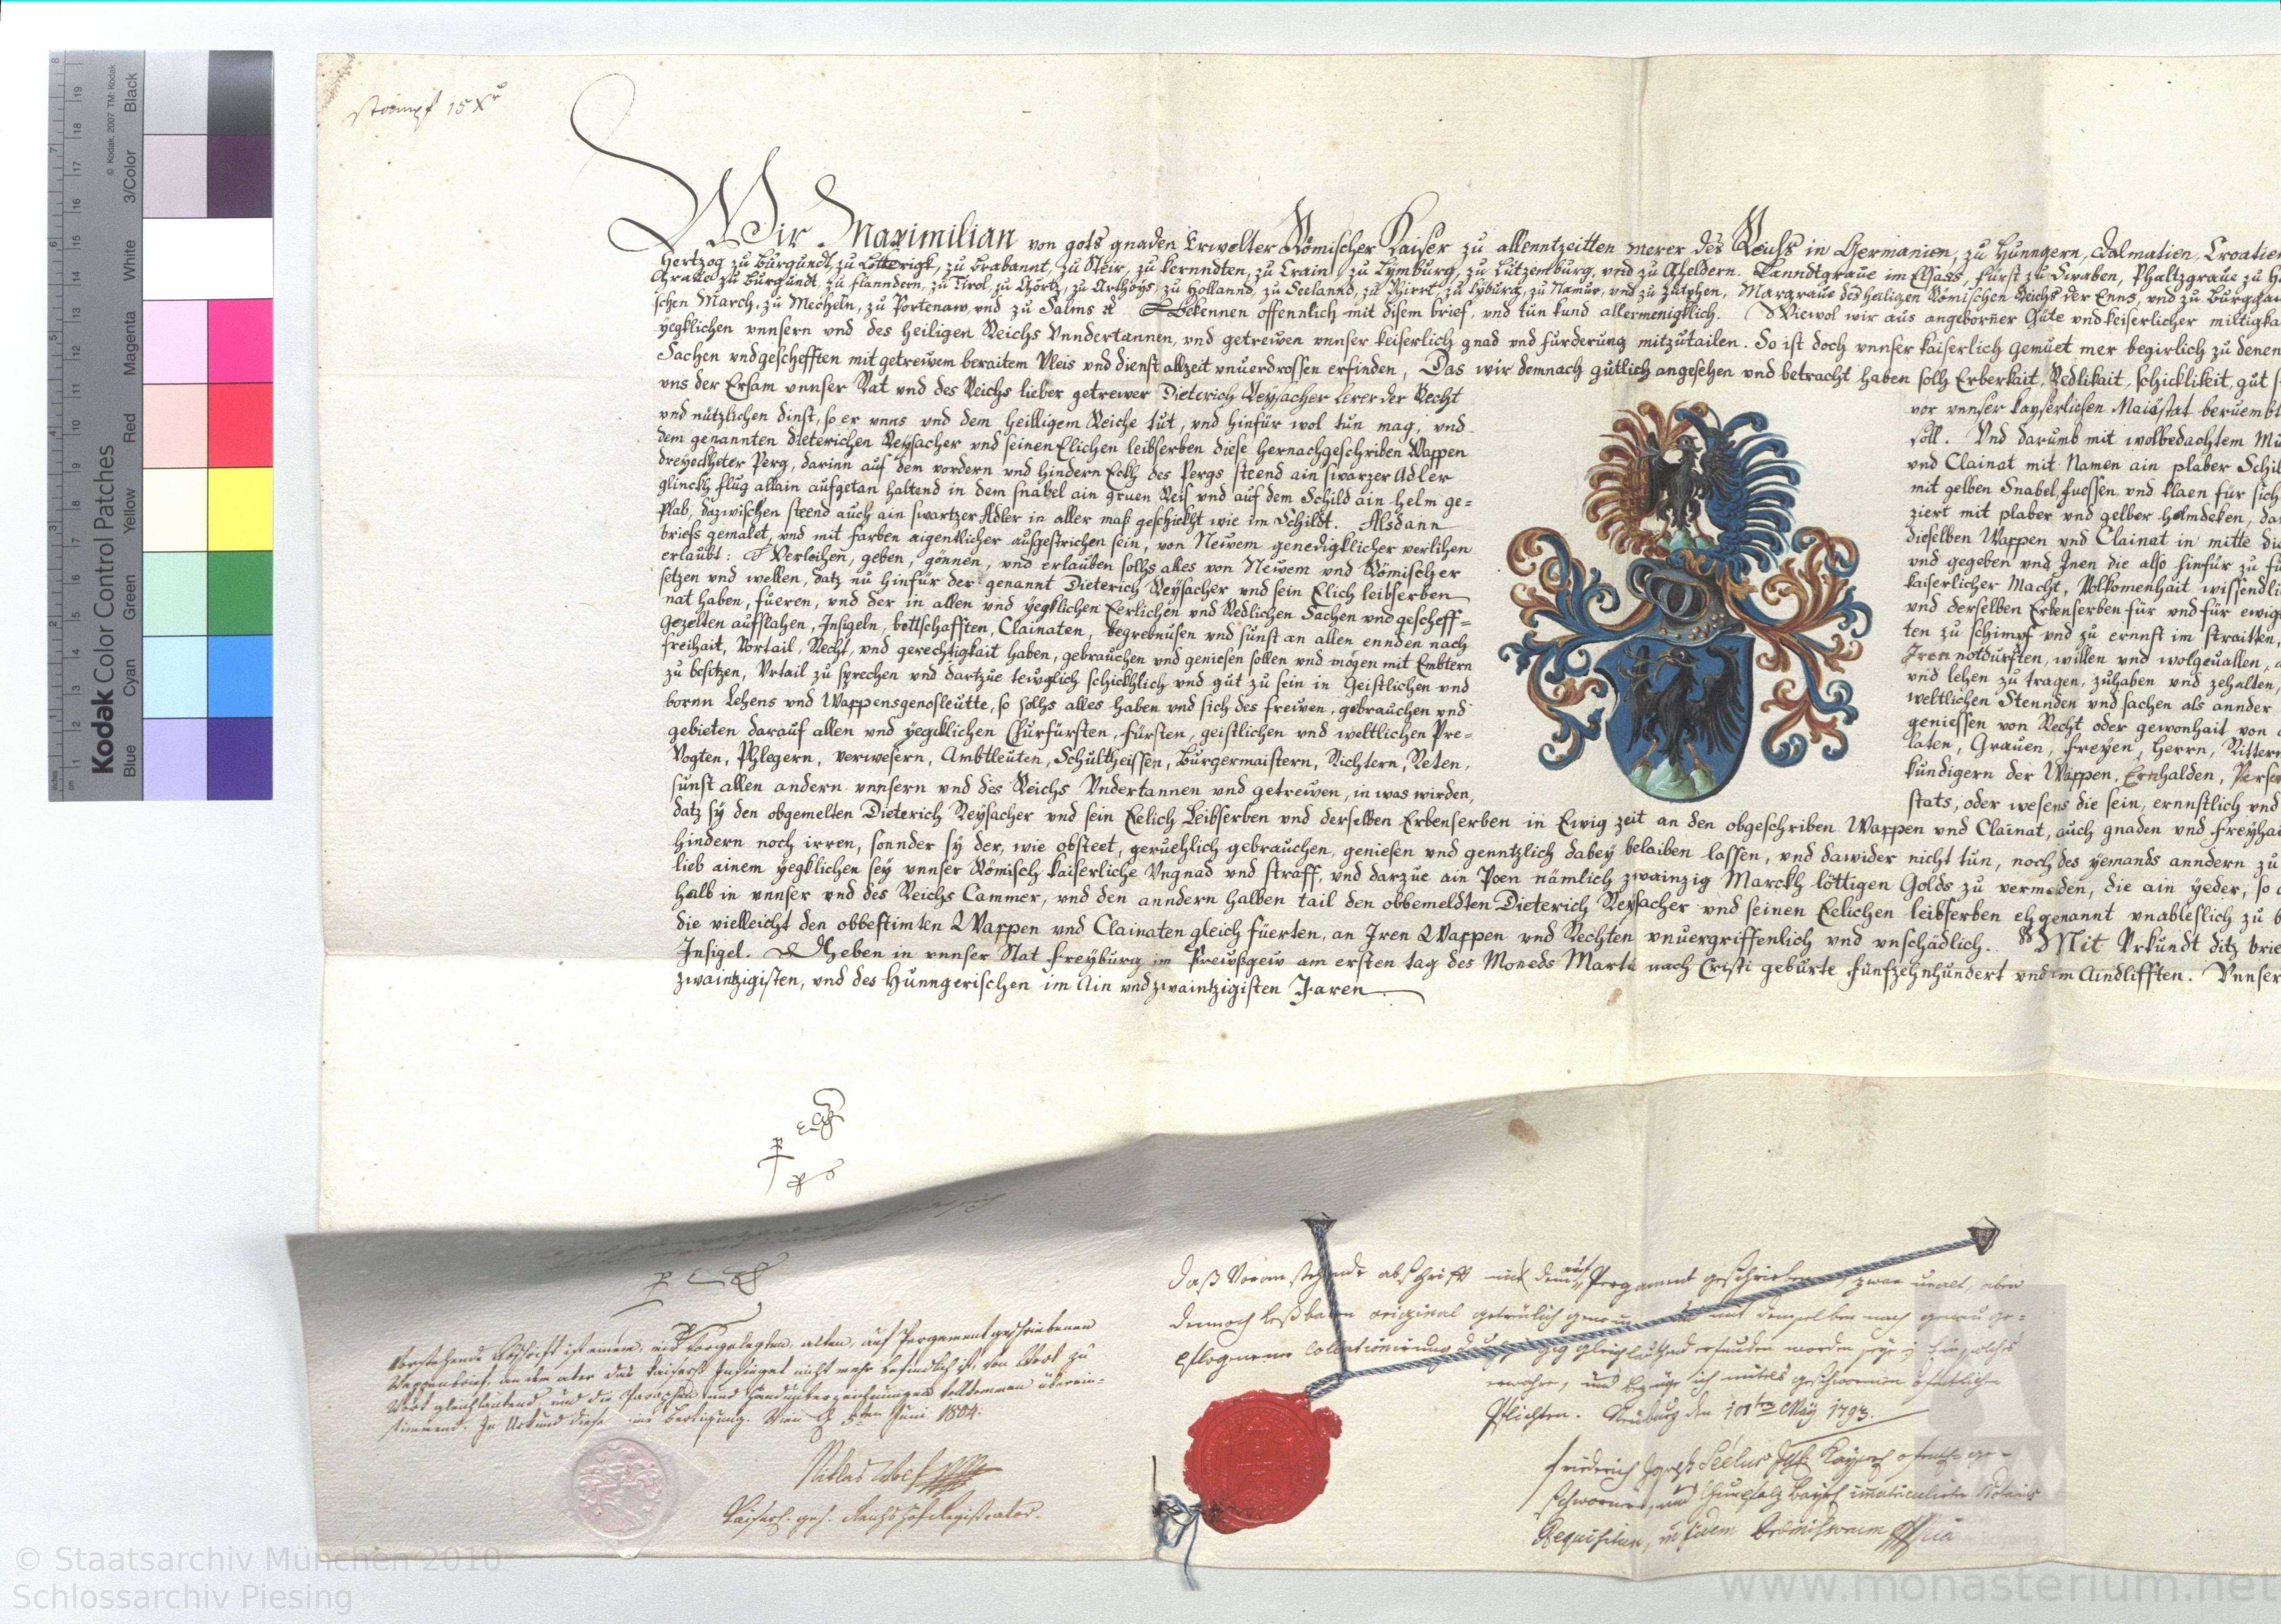 stömpf 15 Xr
Wir Maximilian von gots gnaden Erwelter Römischer Kaiser zu allenntzeitten merer des Reichs in Germanien, zu Hunngern, Dalmatien, Croatien
Hertzog zu Burgundt, zu Lotterigk, zu Brabannt, zu Steir, zu kernndten, zu Crain, zu Lymburg, zu Lutzemburg, vnd zu Gheldern. Lanndtgraue im Elsass, Fürst zu Swaben, Phaltzgraue zu H
Graue zu Burgundt, zu Flanndern, zu Tirol, zu Görtz, zu Arthoys, zu Hollannd, zu Seelannd, zu Phirrt, zu Kyburg, zu Namur, vnd zu Zutphen, Margraue des heiligen Römischen Reichs der Enns, vnd zu Burgau
schen March, zu Mecheln, zu Portenaw vnd zu Salins Bekennen offennlich mit disem brief, vnd tun kund allermenigklich. Wiewol wir aus angeborner Güte vnd keiserlicher miltigka
yegklichen vnnsern vnd des heiligen Reichs Vnndertannen, vnd getrewen vnnser keiserlich gnad vnd furderung mitzutailen. So ist doch vnnser kaiserlich gemuet mer begirlich zu denen
Sachen vnd geschefften mit getrewem beraitem Vleis vnd dienst allzeit vnuerdrossen erfinden, Das wir demnach gütlich angesehen vnd betracht haben solh Erberkait, Redlikait, schicklikeit, güt
vns der Ersam vnnser Rat vnd des Reichs lieber getrewer Dieterich Reysacher Lerer der Recht
vor vnnser kayserlichen Maiestat beruembt
vnd nutzlichen dinst, so er vnns vnd dem heilligem Reiche tut, vnd hinfür wol tun mag, vnd
soll. Vnd darumb mit wolbedachtem Mu
dem genannten Dieterichen Reysacher vnd seinen Elichen leibserben diese hernachgeschriben Wappen
vnd Clainat mit Namen ain plaber Schil
dreyeckheter Perg, darinn auf dem vordern vnd hindern Eckh des Pergs steend ain swarzer Adler
mit gelben Snabel, fuessen vnd klaen für sich
glinckh flug allain aufgetan haltend in dem snabel ain gruen Reis vnd auf dem Schild ain helm ge=
ziert mit plaber vnd gelber helmdeken, da
Plab, dazwischen steend auch ain swartzer Adler in aller maß geschickht wie im Schildt. Alsdann
dieselben Wappen vnd Clainat in mitte di
briefs gemalet, vnd mit farben aigentlicher ausgestrichen sein, von Newem genedigklicher verlihen
vnd gegeben vnd Inen die also hinfür zu fü
erlaubt: Verleihen, geben, gönnen, vnd erlauben solhs alles von Newem vnd Römischer
kaiserlicher Macht, Volkomenhait wissendli
setzen vnd wellen, datz nu hinfür der genannt Dieterich Reysacher vnd sein Elich leibserben
vnd derselben Erbenserben für vnd für ewig
nat haben, füeren, vnd der in allen vnd yegklichen Eerlichen vnd Redlichen Sachen vnd gescheff=
ten zu schimpf vnd zu ernnst im straitten,
Gezelten aufslahen, Insigeln, bettschafften, Clainaten, begrebnusen vnd sunst an allen ennden nach
Iren notdurften, willen vnd wolgeuallen,
freihait, Vortail, Recht, vnd gerechtigkait haben, gebrauchen vnd geniesen sollen vnd mögen mit Embtern
vnd lehen zu tragen, zuhaben vnd zehalten,
zu besitzen, Vrtail zu sprechen vnd dartzue teuglich schickhlich vnd gut zu sein in Geistlichen vnd
weltlichen Stennden vnd sachen als annder
born Lehens vnd Wappensgenosleutte, so solhs alles haben vnd sich des frewen, gebrauchen vnd
geniessen von Recht oder gewonhait von
gebieten darauf allen vnd yegklichen Churfürsten, fürsten, geistlichen vnd weltlichen Pre=
laten, Grauen, Freyen, Herrn, Rittern
Vogten, Phlegern, verwesern, Ambtleuten, Schultheissen, Burgermaistern, Richtern, Reten,
kundigern der Wappen, Ernhalden, Perse
sunst allen andern vnnsern vnd des Reichs Vndertannen vnd getrewen, in was wirden,
stats, oder wesens die sein, ernnstlich vnd
datz sy den obgemelten Dieterich Reysacher vnd sein Eelich Leibserben vnd derselben Erbenserben in Ewig zeit an den obgeschriben Wappen vnd Clainat, auch gnaden vnd Freyhai
hindern noch irren, sonnder sy der, wie obsteet, geruehlich gebrauchen, geniesen vnd genntzlich dabey belaiben lassen, vnd dawider nicht tun, noch des yemands anndern zu
lieb ainem yegklichen sey vnnser Römisch kaiserliche Vngnad vnd straff, vnd darzue ain Poen nämlich zwainzig Marckh löttigen Golds zu vermeiden, die ain yeder, so
halb in vnnser vnd des Reichs Cammer, vnd den anndern halben tail den obbemeldten Dieterich Reysacher vnd seinen Eelichen leibserben ehgenannt vnableslich zu b
die vielleicht den obbestimten Wappen vnd Clainaten gleich füerten, an Iren Wappen vnd Rechten vnuergriffenlich vnd vnschädlich. Mit Vrkundt ditz brie
Insigel. Geben in vnnser Stat Freyburg im Preiißgew am ersten tag des Moneds Martii nach Cristi geburte Funfzehnhundert vnd im Aindlifften. Vnnser
zwaintzigisten, vnd des Hunngerischen im Ain vnd zwaintzigisten Jaren
Vorstehende Abschrift ist einem, mir vorgelegten, alten, auf Pergament geschriebenen
Wappenbrief, an dem aber das kaiserl. Insiegel nicht mehr befindlich ist, von Wort zu
Wort gleichlautend, und die Paraphen und Handunterzeichnungen vollkommen überein=
stimmend. In Urkund diese Fertigung. Wien 5ten Juni 1804.
Niklas Wolf
Kaiserl. geh. Reichshof Registrator.
Daß Voranstehende abschrift mit dem auf Pergament geschriebenen zwar uralt, aber
dennoch leßbaren original getreulich und mit demselben nach genau ge=
pflogener Collationirung gleichlautend erfunden worden seye; ein solches
und bezeuge ich mittels geschworner öfentlicher
Pflichten. Neuburg den 10ten May 1793.
Friderich Joseph Kayserl. ge=
schworner, und Churpfalz bayrl. imatriculirter Notarius
Requisitus, in fidem
Kodak Color Control Patches
© Kodak, 2007 TM: Kodak
Blue Cyan Green Yellow Red Magenta White 3/Color Black
inches 1 2 3 4 5 6 7 8
cm 1 2 3 4 5 6 7 8 9 10 11 12 13 14 15 16 17 18 19
© Staatsarchiv München 2010
Schlossarchiv Piesing
www.monasterium.net